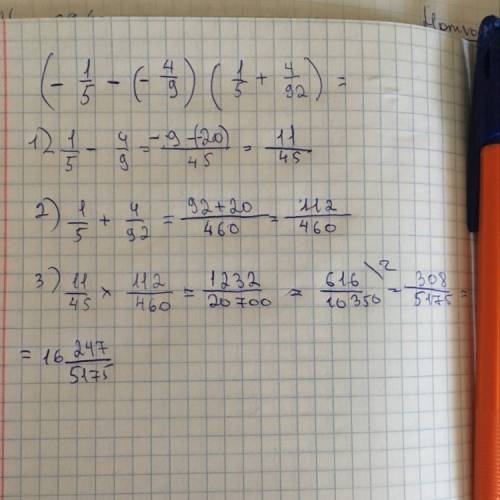 (- 1/5 - (- 4/9) (1/5 + 4/92) =
1) 1/5 - 4/9 = -9-(-20)/45 = 11/45
2) 1/5 + 4/92 = 92+20/460 = 112/460
3) 11/45 × 112/460 = 1232/20700 = 616/10350 \2 = 308/5175 =
= 16 247/5175